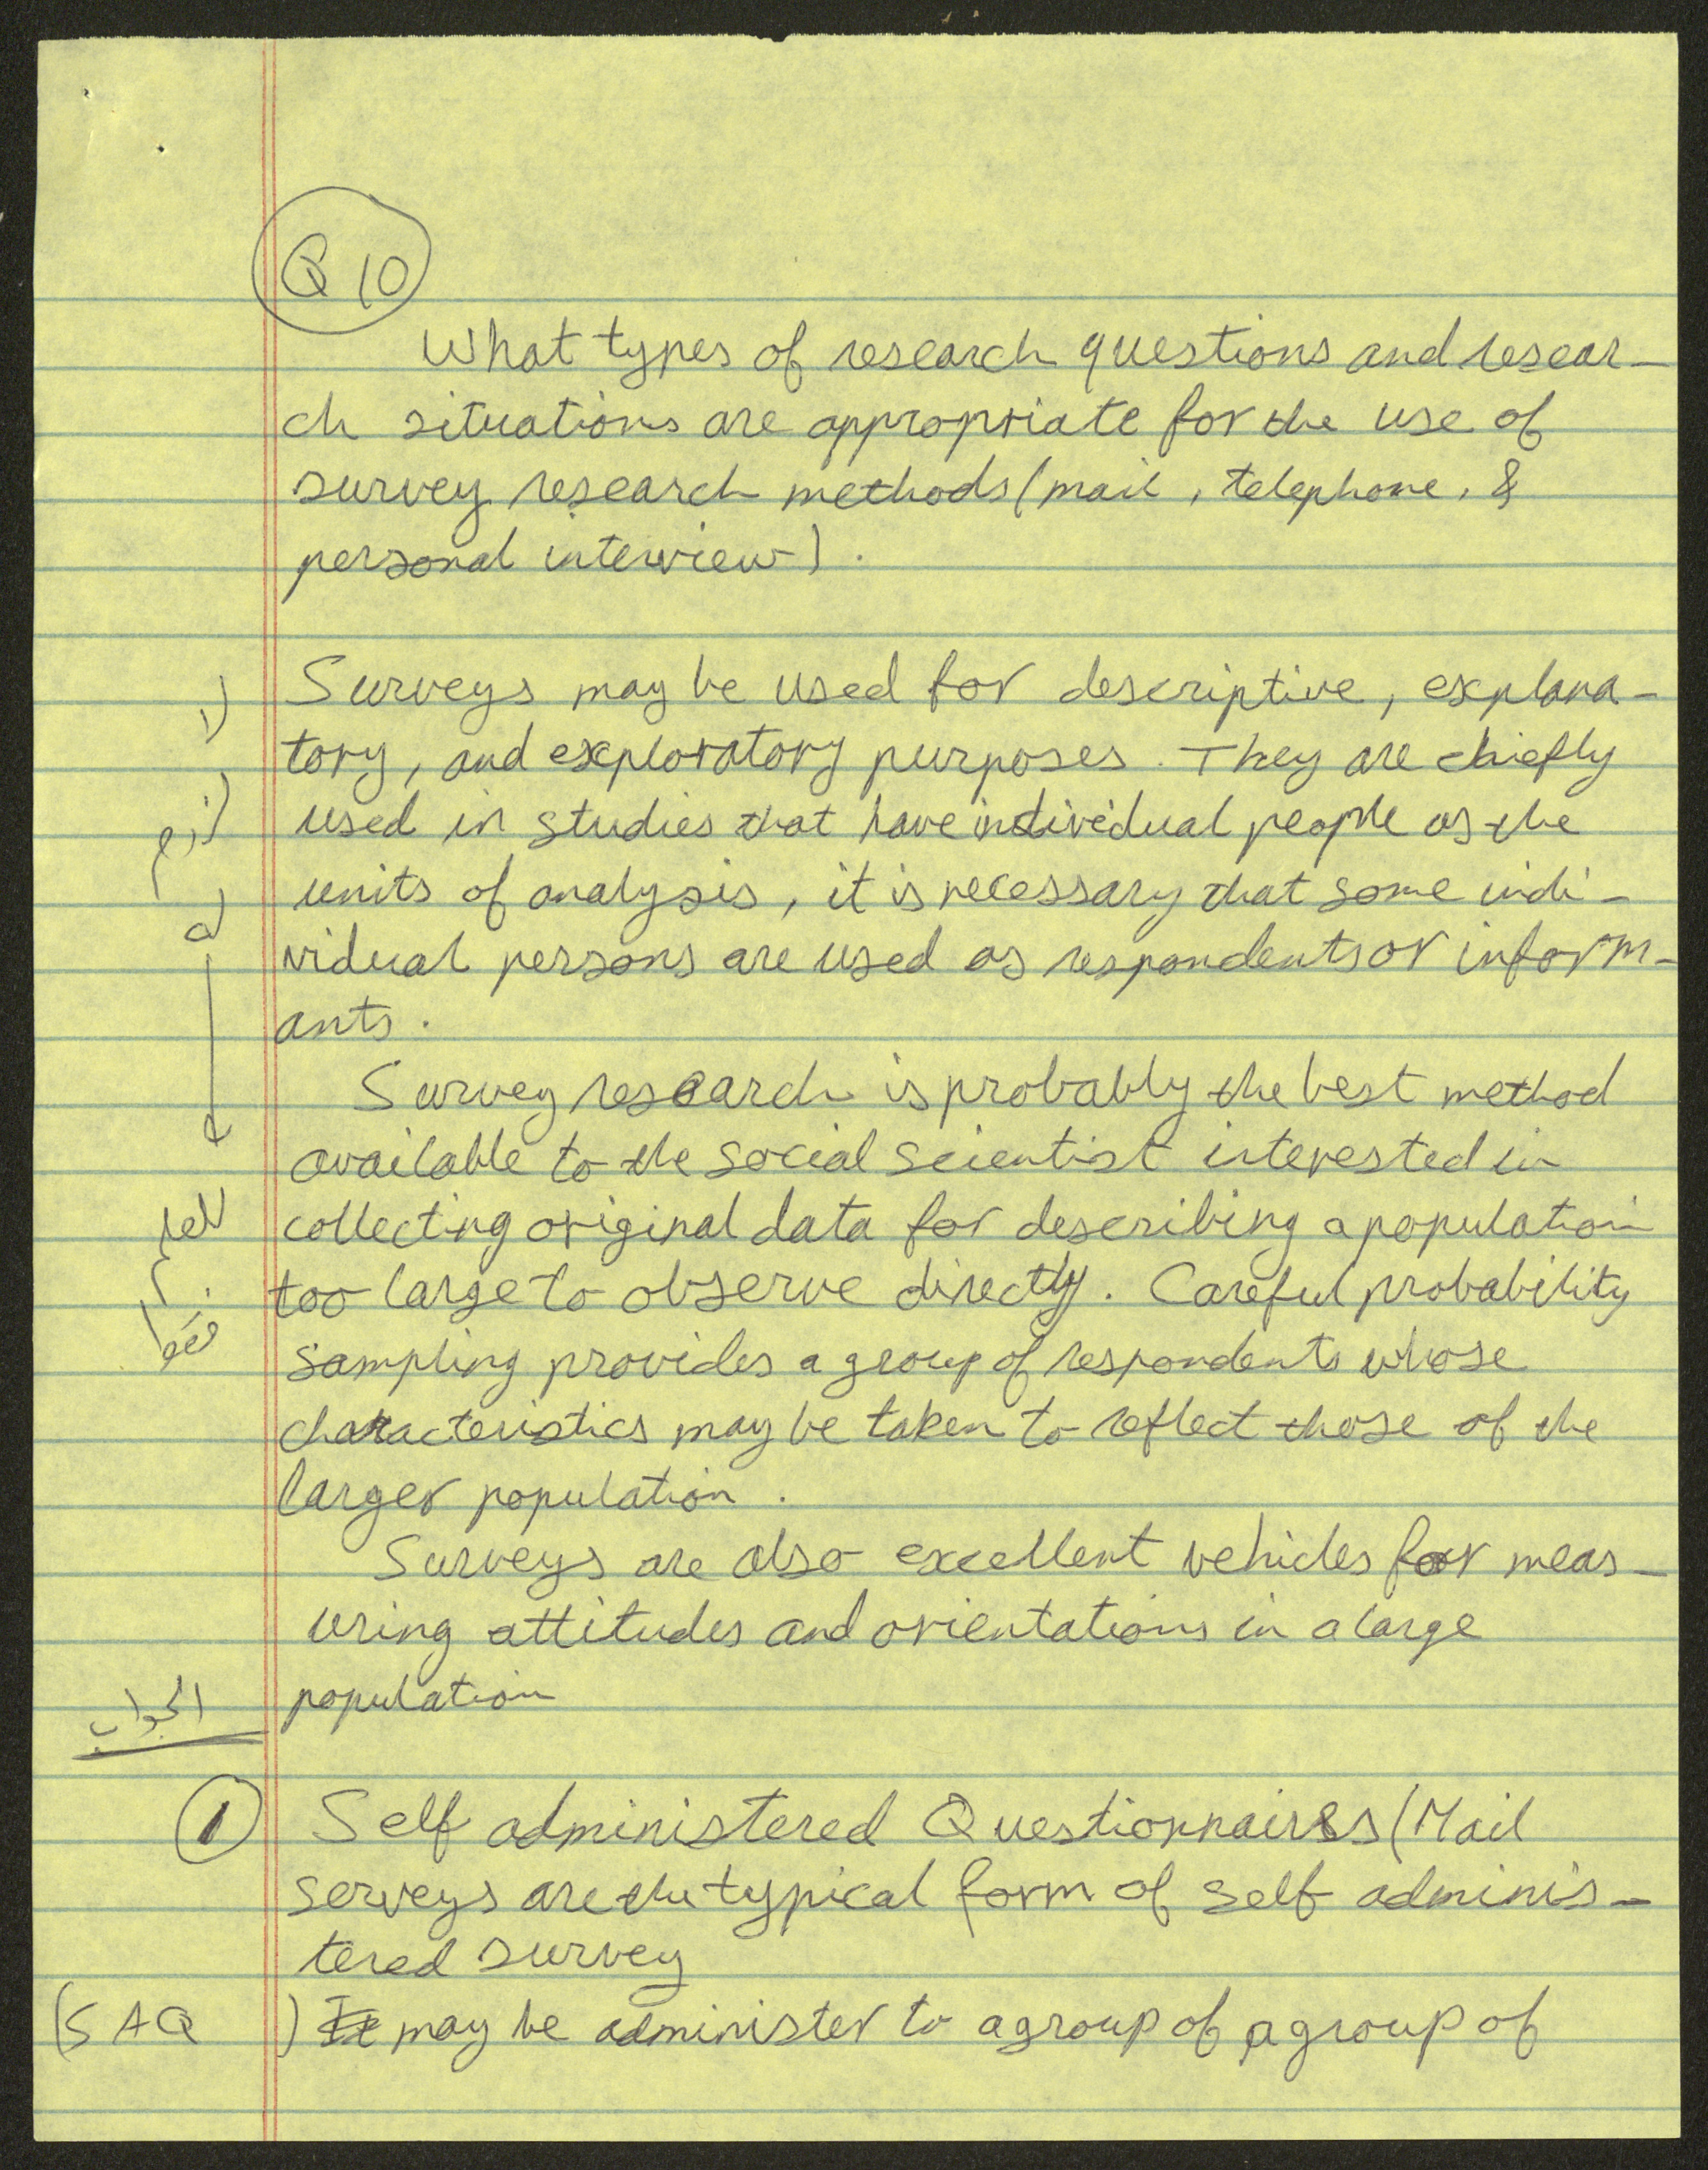 Q 10
What types of research questions and resear-
ch situations are appropriate for the use of
survey research methods (mail, telephone, &
personal interview).
Surveys may be used for descriptive, explana-
tory, and exploratory purposes. They are chiefly
used in studies that have individual people as the
units of analysis, it is necessary that some indi-
vidual persons are used as respondents or inform-
ants.
Survey research is probably the best method
available to the social scientist interested in
collecting original data for describing a population
too large to observe directly. Careful probability
sampling provides a group of respondents whose
characteristics may be taken to reflect those of the
larger population.
Surveys are also excellent vehicles for meas-
uring attitudes and orientations in a large
population
الجواب
1 Self administered Questionnaires (Mail
serveys are the typical form of self adminis-
tered survey
(SAQ) It may be administer to a group of a group of